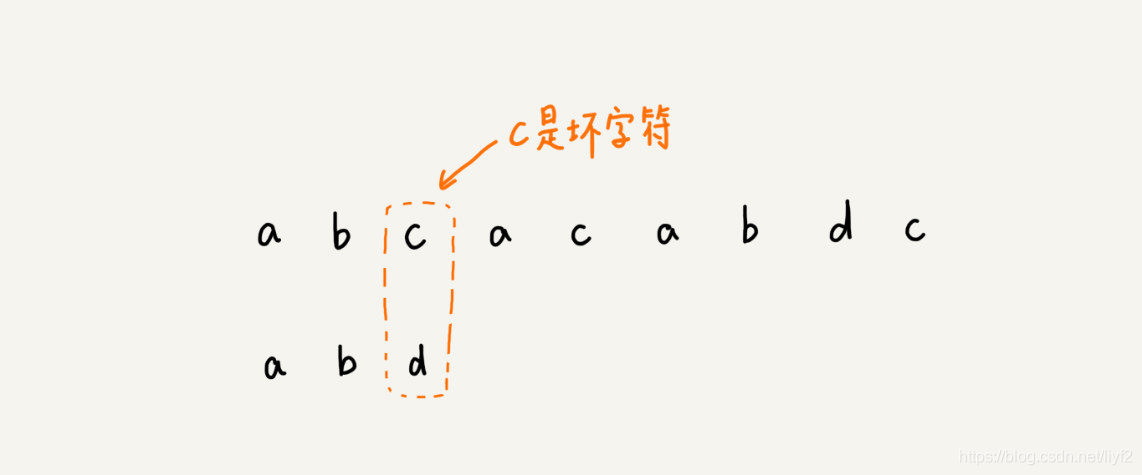 c是坏字符
a b c a c a b d c
a b d
https://blog.csdn.net/liyf2